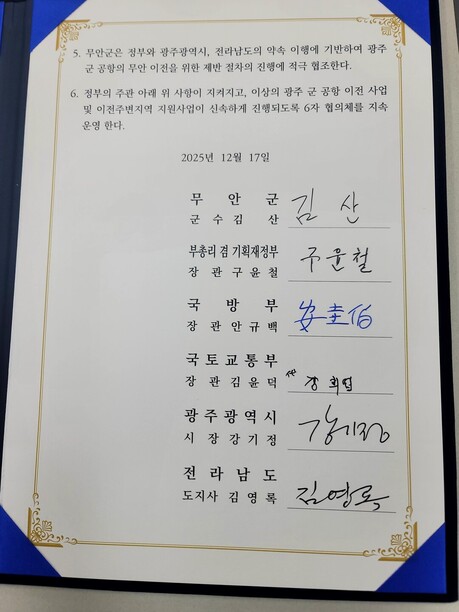 5. 무안군은 정부와 광주광역시, 전라남도의 약속 이행에 기반하여 광주
군 공항의 무안 이전을 위한 제반 절차의 진행에 적극 협조한다.
6. 정부의 주관 아래 위 사항이 지켜지고, 이상의 광주 군 공항 이전 사업
및 이전주변지역 지원사업이 신속하게 진행되도록 6자 협의체를 지속
운영 한다.
2025년 12월 17일
무 안 군
군 수 김 산 김 산
부총리 겸 기획재정부
장 관 구 윤 철 구윤철
국 방 부
장 관 안 규 백 安圭伯
국 토 교 통 부
장 관 김 윤 덕 강희업
광 주 광 역 시
시 장 강 기 정 강기정
전 라 남 도
도지사 김 영 록 김영록